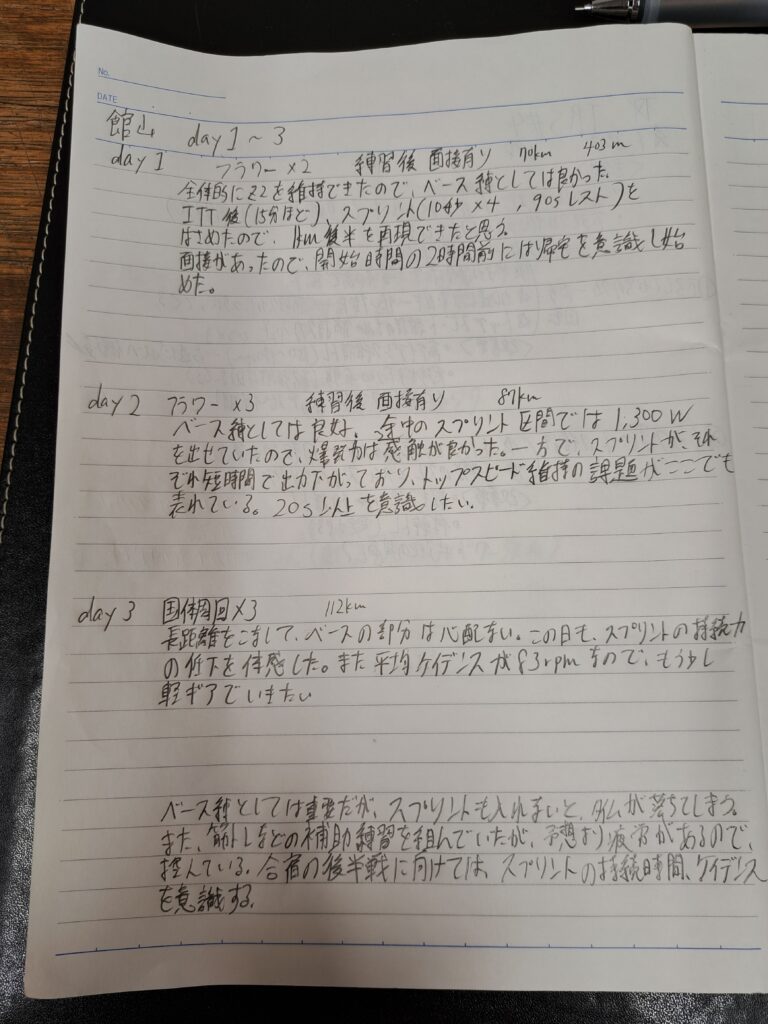 No.
DATE
館山 day1～3
day1 フラワー×2 練習後 面接有り 70km 403m
全体的にZ2を維持できたので、ベース練としては良かった。
ITT後(15分ほど)、スプリント(10秒×4，90sレスト)を
はさめたので、1km後半を再現できたと思う。
面接があったので、開始時間の2時間前には帰宅を意識し始
めた。
day2 フラワー×3 練習後 面接有り 87km
ベース練としては良好。途中のスプリント区間では1,300W
を出せていたので、爆発力は感触が良かった。一方で、スプリントが、それ
ぞれ短時間で出力下がっており、トップスピード維持の課題がここでも
表れている。20s以上を意識したい。
day3 国体周回×3 112km
長距離をこまして、ベースの部分は心配ない。この日も、スプリントの持続力
の低下を体感した。また平均ケイデンスが83rpmなので、もう少し
軽ギアでいきたい
ベース練としては重要だが、スプリントも入れないと、タイムが落ちてしまう。
また、筋トレなどの補助練習を組んでいたが、予想より疲労があるので、
控えている。合宿の後半戦に向けては、スプリントの持続時間、ケイデンス
を意識する。